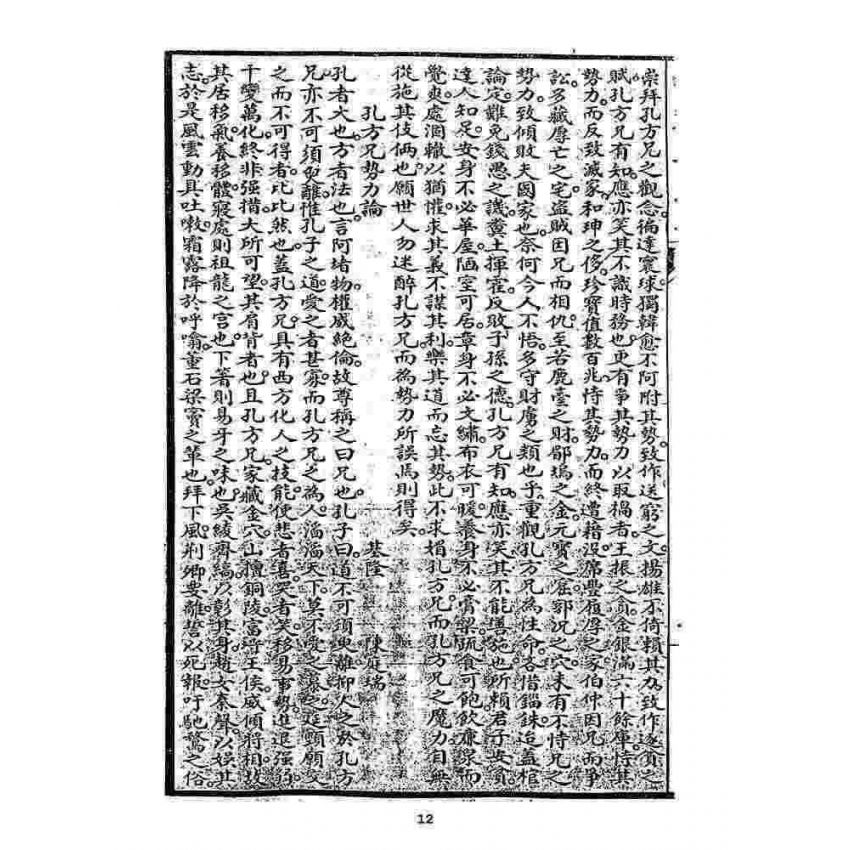 崇拜孔方兄之觀念。徧達寰球。獨韓愈不阿附其勢。致作送窮之文。揚雄不倚賴其力。致作逐貧之
賦。孔方兄有知。應亦笑其不識時務也。更有爭其勢力以取禍者。王振之貪。金銀滿六十餘庫。恃其
勢力。而反致滅家。和珅之侈。珍寶值數百兆。恃其勢力。而終遭籍沒。席豐履厚之家。伯仲因兄而爭
訟。多藏厚亡之宅。盜賊因兄而相仇。至若鹿臺之財。郿塢之金。元寶之窟。郭況之穴。未有不恃兄之
勢力。致傾敗夫國家也。奈何今人不悟。多守財虜之類也乎。重觀孔方兄為性命。吝惜錙銖。迨蓋棺
論定。難免錢愚之譏。糞土揮霍。反敗子孫之德。孔方兄有知。應亦笑其不能善施也。所賴君子安貧。
達人知足。安身不必華屋。陋室可居。章身不必文繡。布衣可暖。養身不必膏粱。蔬食可飽。飲廉泉而
覺爽。處涸轍以猶懽。求其義不謀其利。樂其道而忘其勢。此不求媚孔方兄。而孔方兄之魔力自無
從施其伎倆也。願世人勿迷醉孔方兄。而為勢力所誤焉則得矣。
孔方兄勢力論 基隆 陳庭瑞
孔者大也。方者法也。言阿堵物權威絕倫。故尊稱之曰兄也。孔子曰。道不可須臾離。仰人之於孔方
兄。亦不可須臾離。惟孔子之道。愛之者甚寡。而孔方兄之為人。滔滔天下。莫不愛之慕之。延頸願交
之而不可得者。比比然也。蓋孔方兄具有西方化人之技。能使悲者喜。笑者哭。移易事勢。進退強弱。
千變萬化。終非強措大所可望其肩背者也。且孔方兄家藏金穴。山積銅陵。富埒王侯。威傾將相。故
其居移氣。養移體。寢處則祖龍之宮也。下箸則易牙之味也。吳綾齊縞。以彰其身。趙女秦聲。以娛其
志。於是風雲動具吐嗽。霜露降於呼噏。董石梁竇之輩也。拜下風。荊卿要離。誓以死報。吁馳騖之俗
12